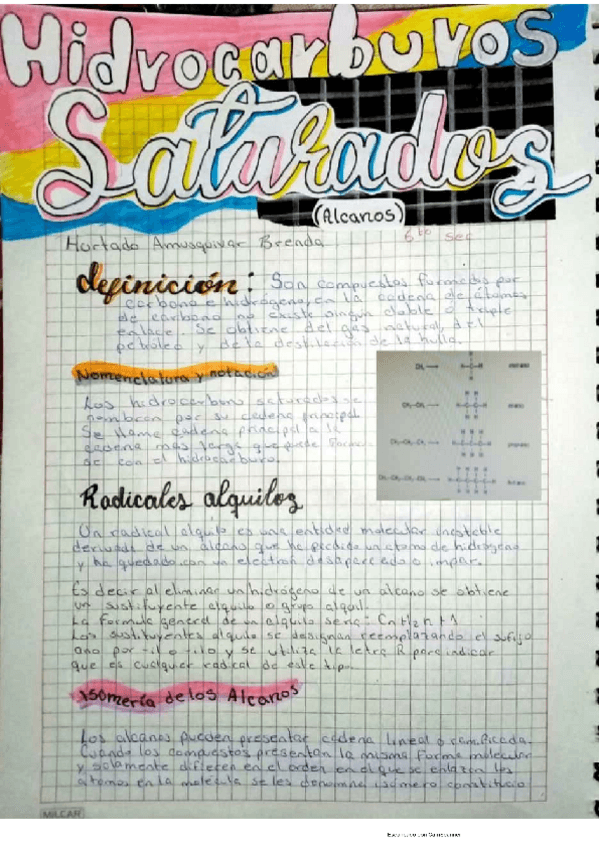 Hidrocarburos
Saturados
(Alcanos)
Hurtado Amusquivar Brenda 6to sec
definición: Son compuestos formados por
carbono e hidrógeno, en la cadena de átomos
de carbono no existe ningún doble o triple
enlace. Se obtiene del gas natural, del
petróleo y de la destilación de la hulla.
Nomenclatura y notación
Los hidrocarburo saturados se
nombran por su cadena principal
Se llama cadena principal a la
cadena más larga que puede formar
de con el hidrocarburo.
Radicales alquiloz
Un radical alquilo es una entidad molecular inestable
derivada de un alcano que ha perdido un atomo de hidrógeno
y ha quedado con un electron desaparecado o impar.
Es decir al eliminar un hidrógeno de un alcano se obtiene
un sustituyente alquilo o grupo alquil.
La formula general de un alquilo sera: CnH2n+1
Los sustituyentes alquilo se designan reemplazando el sufijo
ano por -il o -ilo y se utiliza la letra R para indicar
que es cualquier radical de este tipo.
Isomería de los Alcanos
Los alcanos pueden presentar cadena lineal o ramificada.
Cuando los compuestos presentan la misma forma molecular
y solamente difieren en el orden en el que se enlazan los
atomos en la molécula se les denomina isómero constitucio
MILCAR
Escaneado con CamScanner